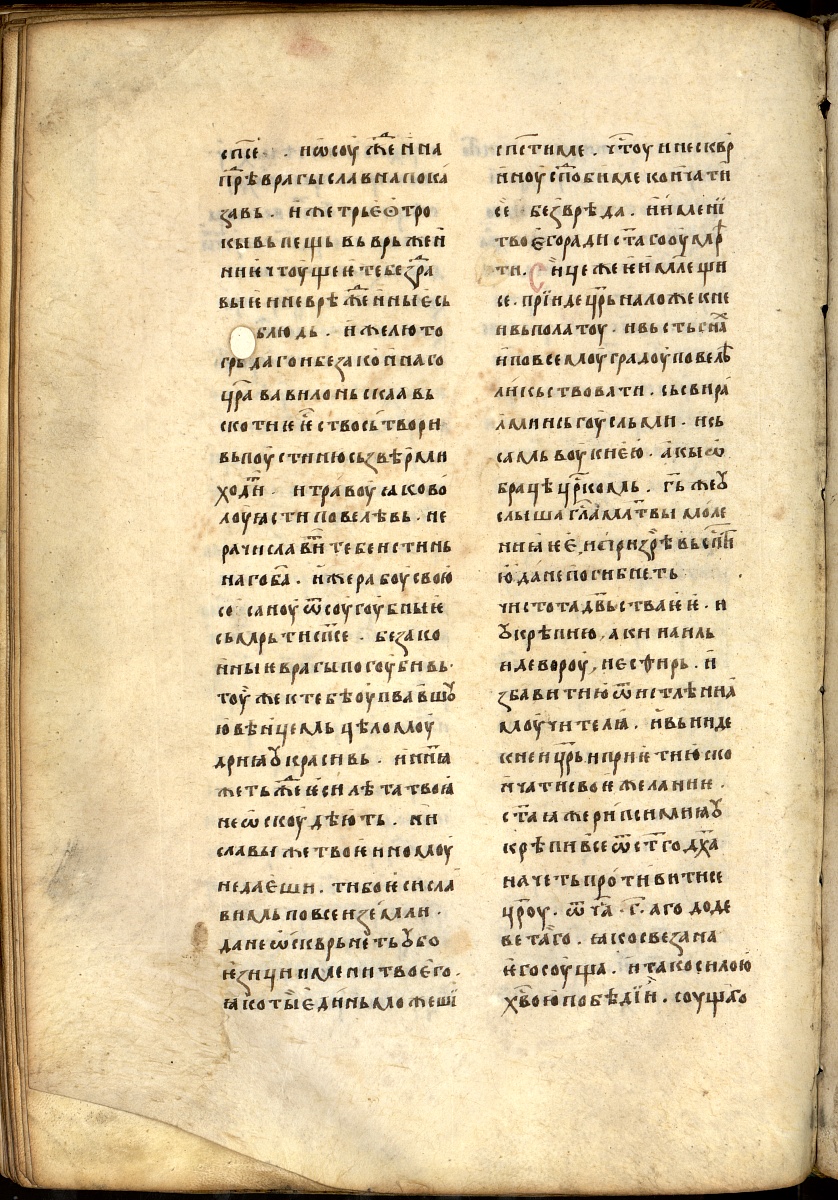 сп҃се . и ѡсоуж҃ен на
пр҃ѣ врагы славна пока
завь . иже трьѥ ѳтро
кы вь пещь вьврьжен
ниѥ чтоущеѥ тебе зр҃а
выѥ и неврѣж҃енныѥ сь
блюдь . иже лютo
грьдаго и безаконнаго
цр҃а вавилоньскаа вь
скотиѥ ѥ҃ство сьтвори
вь поустиню сь звѣрми
ход҃и . и травоу ꙗко во
лоу ꙗсти повелѣвь . не
рꙗчисла вїи тебе истинь
нагѡ ба҃ . иже рабоу свою
со саноу ѿ соугоубныѥ
сьмрьти сп҃се . безако
нныѥ врагы погоубивь .
тоу же к тебѣ оупвавшꙋ
ю вѣнцемь цѣломоу
дриꙗ ꙋкрасивь . и нн҃ꙗ
жеть же ѥси лѣта твоꙗ
не ѡскоудѣють . ни
славы же твоѥ иномоу
не даѥши . ти бо ѥси сла
вимь по всеи земли .
да не ѡскврьнеть ꙋбо
ѥзици имени твоѥго .
ꙗко ты ѥдинь можеши
сп҃сти ме . чт҃оу и нескврь
нноу сп҃оби ме кончати
се безврѣда . и имени
твоѥго ради ст҃аго оумр҃
ти . Сице же ѥи мл҃еши
се . прїиде цр҃ь наложекне
и вь полатоу . и высть гн҃а
и по всемоу градоу повелѣ
ликьствовати . сь свира
лми и сь гоусльми . и сь
самь воу к нѥю . акы ѡ
брацѣ цр҃комь . г҃ь же ꙋ
слыша гл҃а мл҃твы моле
ниꙗ ѥѥ, и призрѣ вьсп҃н
ю да не погибнеть
чистота дв҃ьства ѥѥ . и
ꙋкрѣпию, аки иаиль
и деворoу, и есѳирь . и
збавити ю ѿ истлѣниꙗ
моучителꙗ . и вьниде
к неи цр҃ь и приѥти ю ско
нчати своѥ желаниѥ .
ст҃аꙗ же рипсимиꙗ ꙋ
крѣпивсе ѿ ст҃го дх҃а
начеть противити се
цр҃оу . ѿ ча҃ . г҃ . аго до де
вет҃аго . ꙗко свезана
ѥго соуща . и тако силою
хв҃ою побѣдїи . соущаго